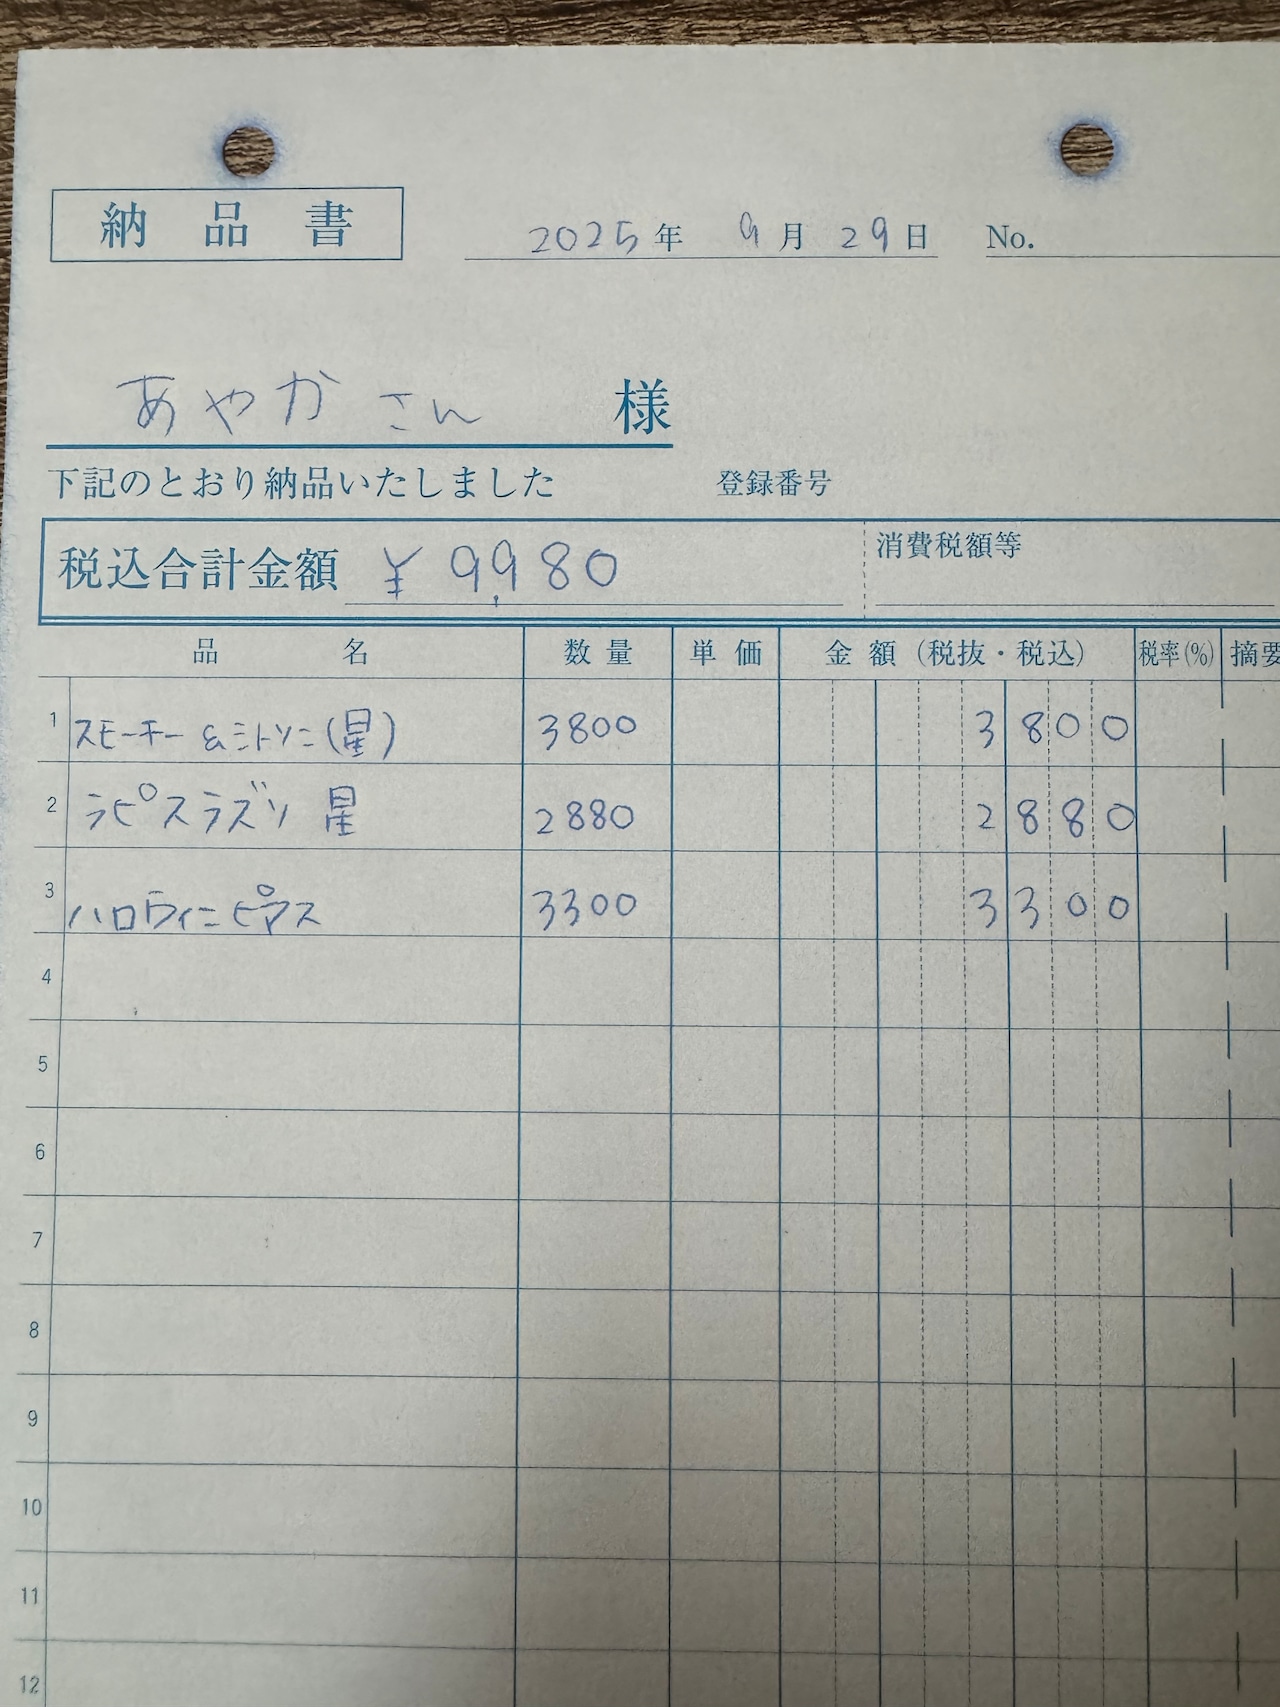 納品書
2025年 9月 29日 No.
あやかさん 様
下記のとおり納品いたしました 登録番号
税込合計金額 ¥9,980 消費税額等
品名 数量 単価 金額(税抜・税込) 税率(%) 摘要
1 スモーキー&シトリン(星) 3800 3800
2 ラピスラズリ 星 2880 2880
3 ハロウィンピアス 3300 3300
4
5
6
7
8
9
10
11
12